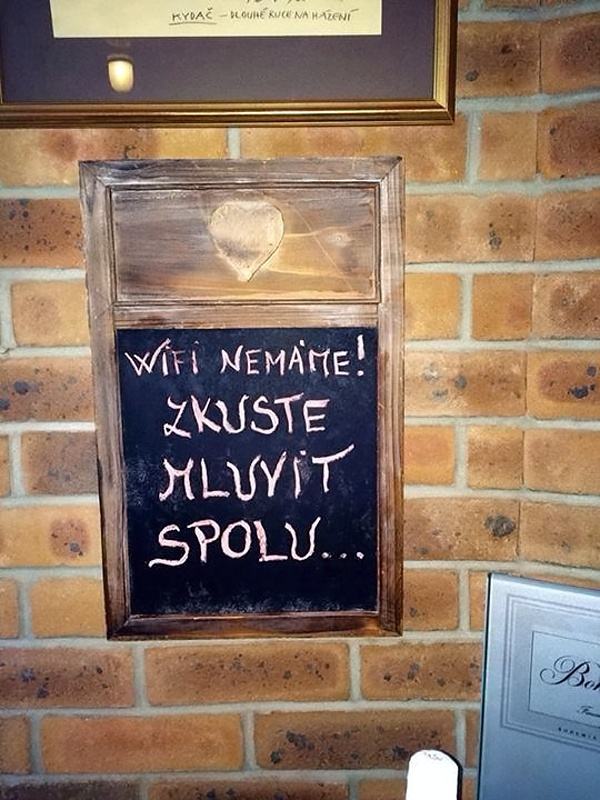 KYDAČ – DLOUHÉ RUCE NA HÁZENÍ
WIFI NEMÁME!
ZKUSTE
MLUVIT
SPOLU...